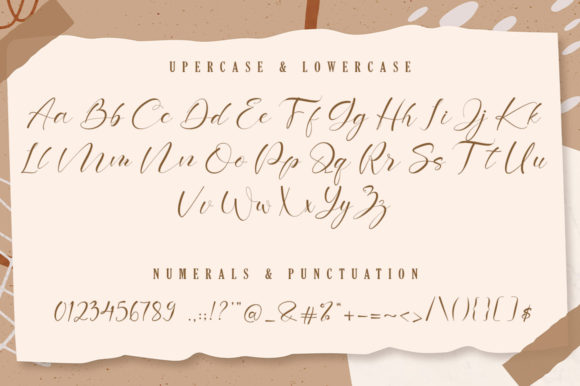 UPERCASE & LOWERCASE
Aa Bb Cc Dd Ee Ff Gg Hh Ii Jj Kk
Ll Mm Nn Oo Pp Qq Rr Ss Tt Uu
Vv Ww Xx Yy Zz
NUMERALS & PUNCTUATION
0123456789 .,:;!?'"@_&#%*+-=~<>/\(){}[]$